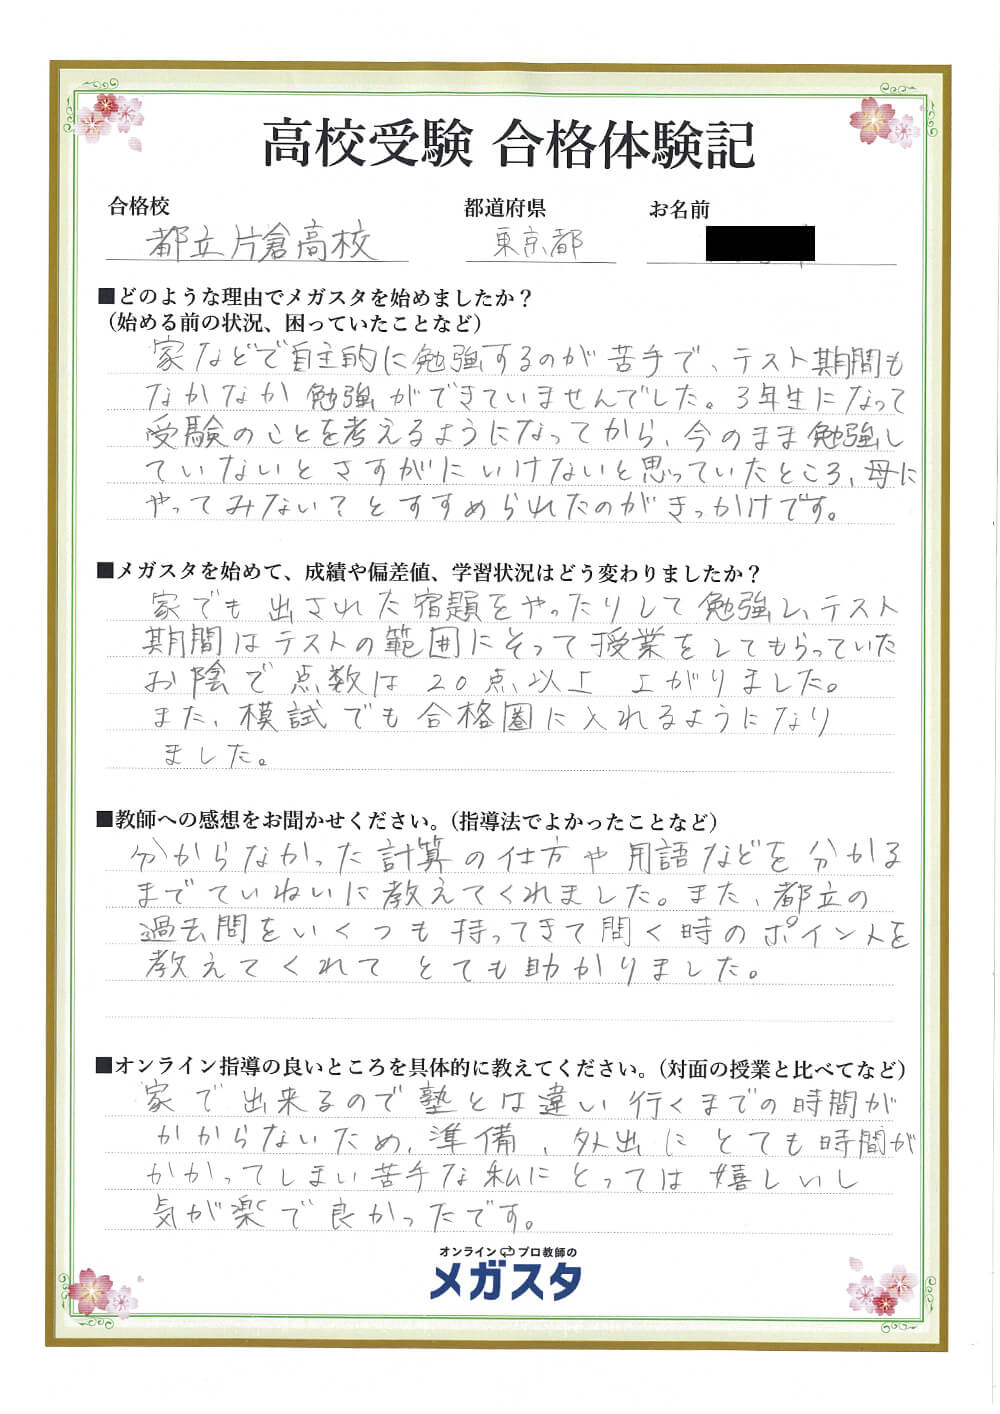 高校受験 合格体験記
合格校 都道府県 お名前
都立片倉高校 東京都
■どのような理由でメガスタを始めましたか？
（始める前の状況、困っていたことなど）
家などで自主的に勉強するのが苦手で、テスト期間も
なかなか勉強ができていませんでした。3年生になって
受験のことを考えるようになってから、今のまま勉強し
ていないとさすがにいけないと思っていたところ、母に
やってみない？とすすめられたのがきっかけです。
■メガスタを始めて、成績や偏差値、学習状況はどう変わりましたか？
家でも出された宿題をやったりして勉強し、テスト
期間はテストの範囲にそって授業をしてもらっていた
お陰で点数は20点以上上がりました。
また、模試でも合格圏に入れるようになり
ました。
■教師への感想をお聞かせください。（指導法でよかったことなど）
分からなかった計算の仕方や用語などを分かる
までていねいに教えてくれました。また、都立の
過去問をいくつも持ってきて聞く時のポイントを
教えてくれてとても助かりました。
■オンライン指導の良いところを具体的に教えてください。（対面の授業と比べてなど）
家で出来るので塾とは違い行くまでの時間が
かからないため、準備、外出にとても時間が
かかってしまい苦手な私にとっては嬉しいし
気が楽で良かったです。
オンライン プロ教師の
メガスタ